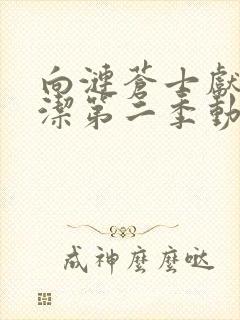 向漣蒼士獻
潔第二季動
成神麼麼噠